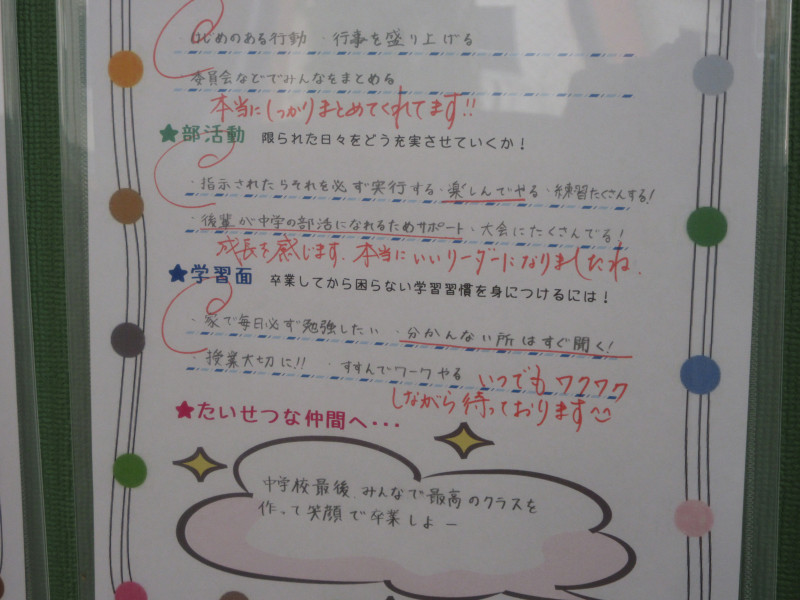 けじめのある行動 ・行事を盛り上げる
委員会などでみんなをまとめる
本当にしっかりまとめてくれてます!!
★部活動 限られた日々をどう充実させていくか!
・指示されたらそれを必ず実行する・楽しんでやる・練習たくさんする!
・後輩が中学の部活になれるためサポート・大会にたくさんでる!
成長を感じます。本当にいいリーダーになりましたね。
★学習面 卒業してから困らない学習習慣を身につけるには!
・家で毎日必ず勉強したい ・分かんない所はすぐ聞く!
・授業大切に!! ・すすんでワークやる
いつでもワクワク
しながら待っております
★たいせつな仲間へ・・・
中学校最後、みんなで最高のクラスを
作って笑顔で卒業しよー